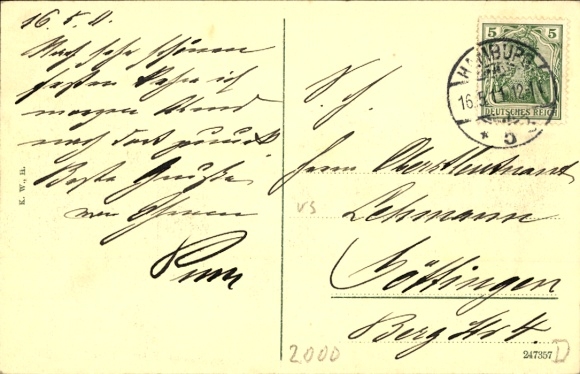 16.5.11.
Nach sehr schönen
Tagen
morgen Abend
nach dort zurück.
Beste Grüße
von Ihrem
S. H.
Herrn Oberstleutnant
Lehmann
Göttingen
Berg Str 4.
5 5
DEUTSCHES REICH
HAMBURG
16.5.11. 12-1
* 5
K. W., H.
vs
2000
247357
D